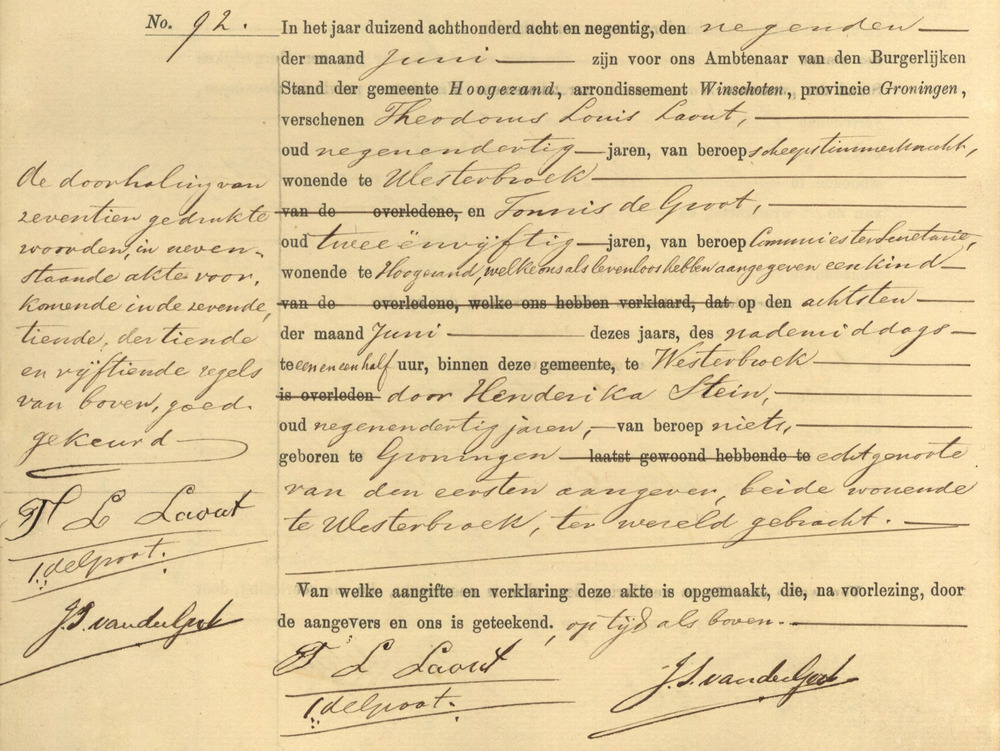 No. 92.
In het jaar duizend achthonderd acht en negentig, den negenden
der maand Juni zijn voor ons Ambtenaar van den Burgerlijken
Stand der gemeente Hoogezand, arrondissement Winschoten, provincie Groningen,
verschenen Theodorus Louis Laout,
oud negenendertig jaren, van beroep scheepstimmerknecht,
wonende te Westerbroek
van de overledene, en Tonnis de Groot,
oud tweeënvijftig jaren, van beroep Commies ter Secretarie,
wonende te Hoogezand, welke ons als levenloos hebben aangegeven een kind
van de overledene, welke ons hebben verklaard, dat op den achtsten
der maand Juni dezes jaars, des nademiddags
te een en een half uur, binnen deze gemeente, te Westerbroek
is overleden door Henderika Stein,
oud negenendertig jaren, van beroep niets,
geboren te Groningen laatst gewoond hebbende te echtgenoote
van den eersten aangever, beide wonende
te Westerbroek, ter wereld gebracht.
Van welke aangifte en verklaring deze akte is opgemaakt, die, na voorlezing, door
de aangevers en ons is geteekend, op tijd als boven.
T L Laout
T. de Groot.
de doorhaling van
zeventien gedrukte
woorden, in neven-
staande akte voor,
komende in de zevende,
tiende, dertiende
en vijftiende regels
van boven, goed-
gekeurd
T L Laout
T. de Groot.